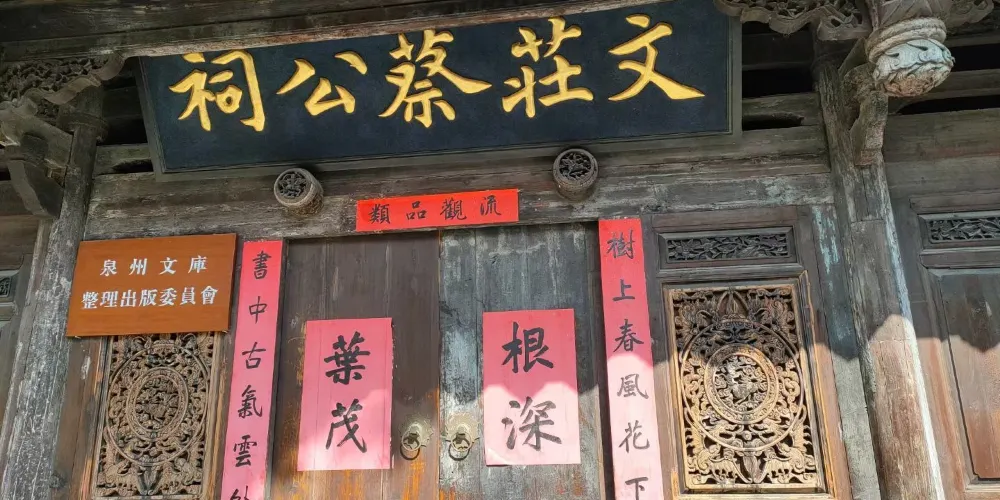 文莊蔡公祠
流觀品類
樹上春風花下
根深
葉茂
書中古氣雲
泉州文庫
整理出版委員會